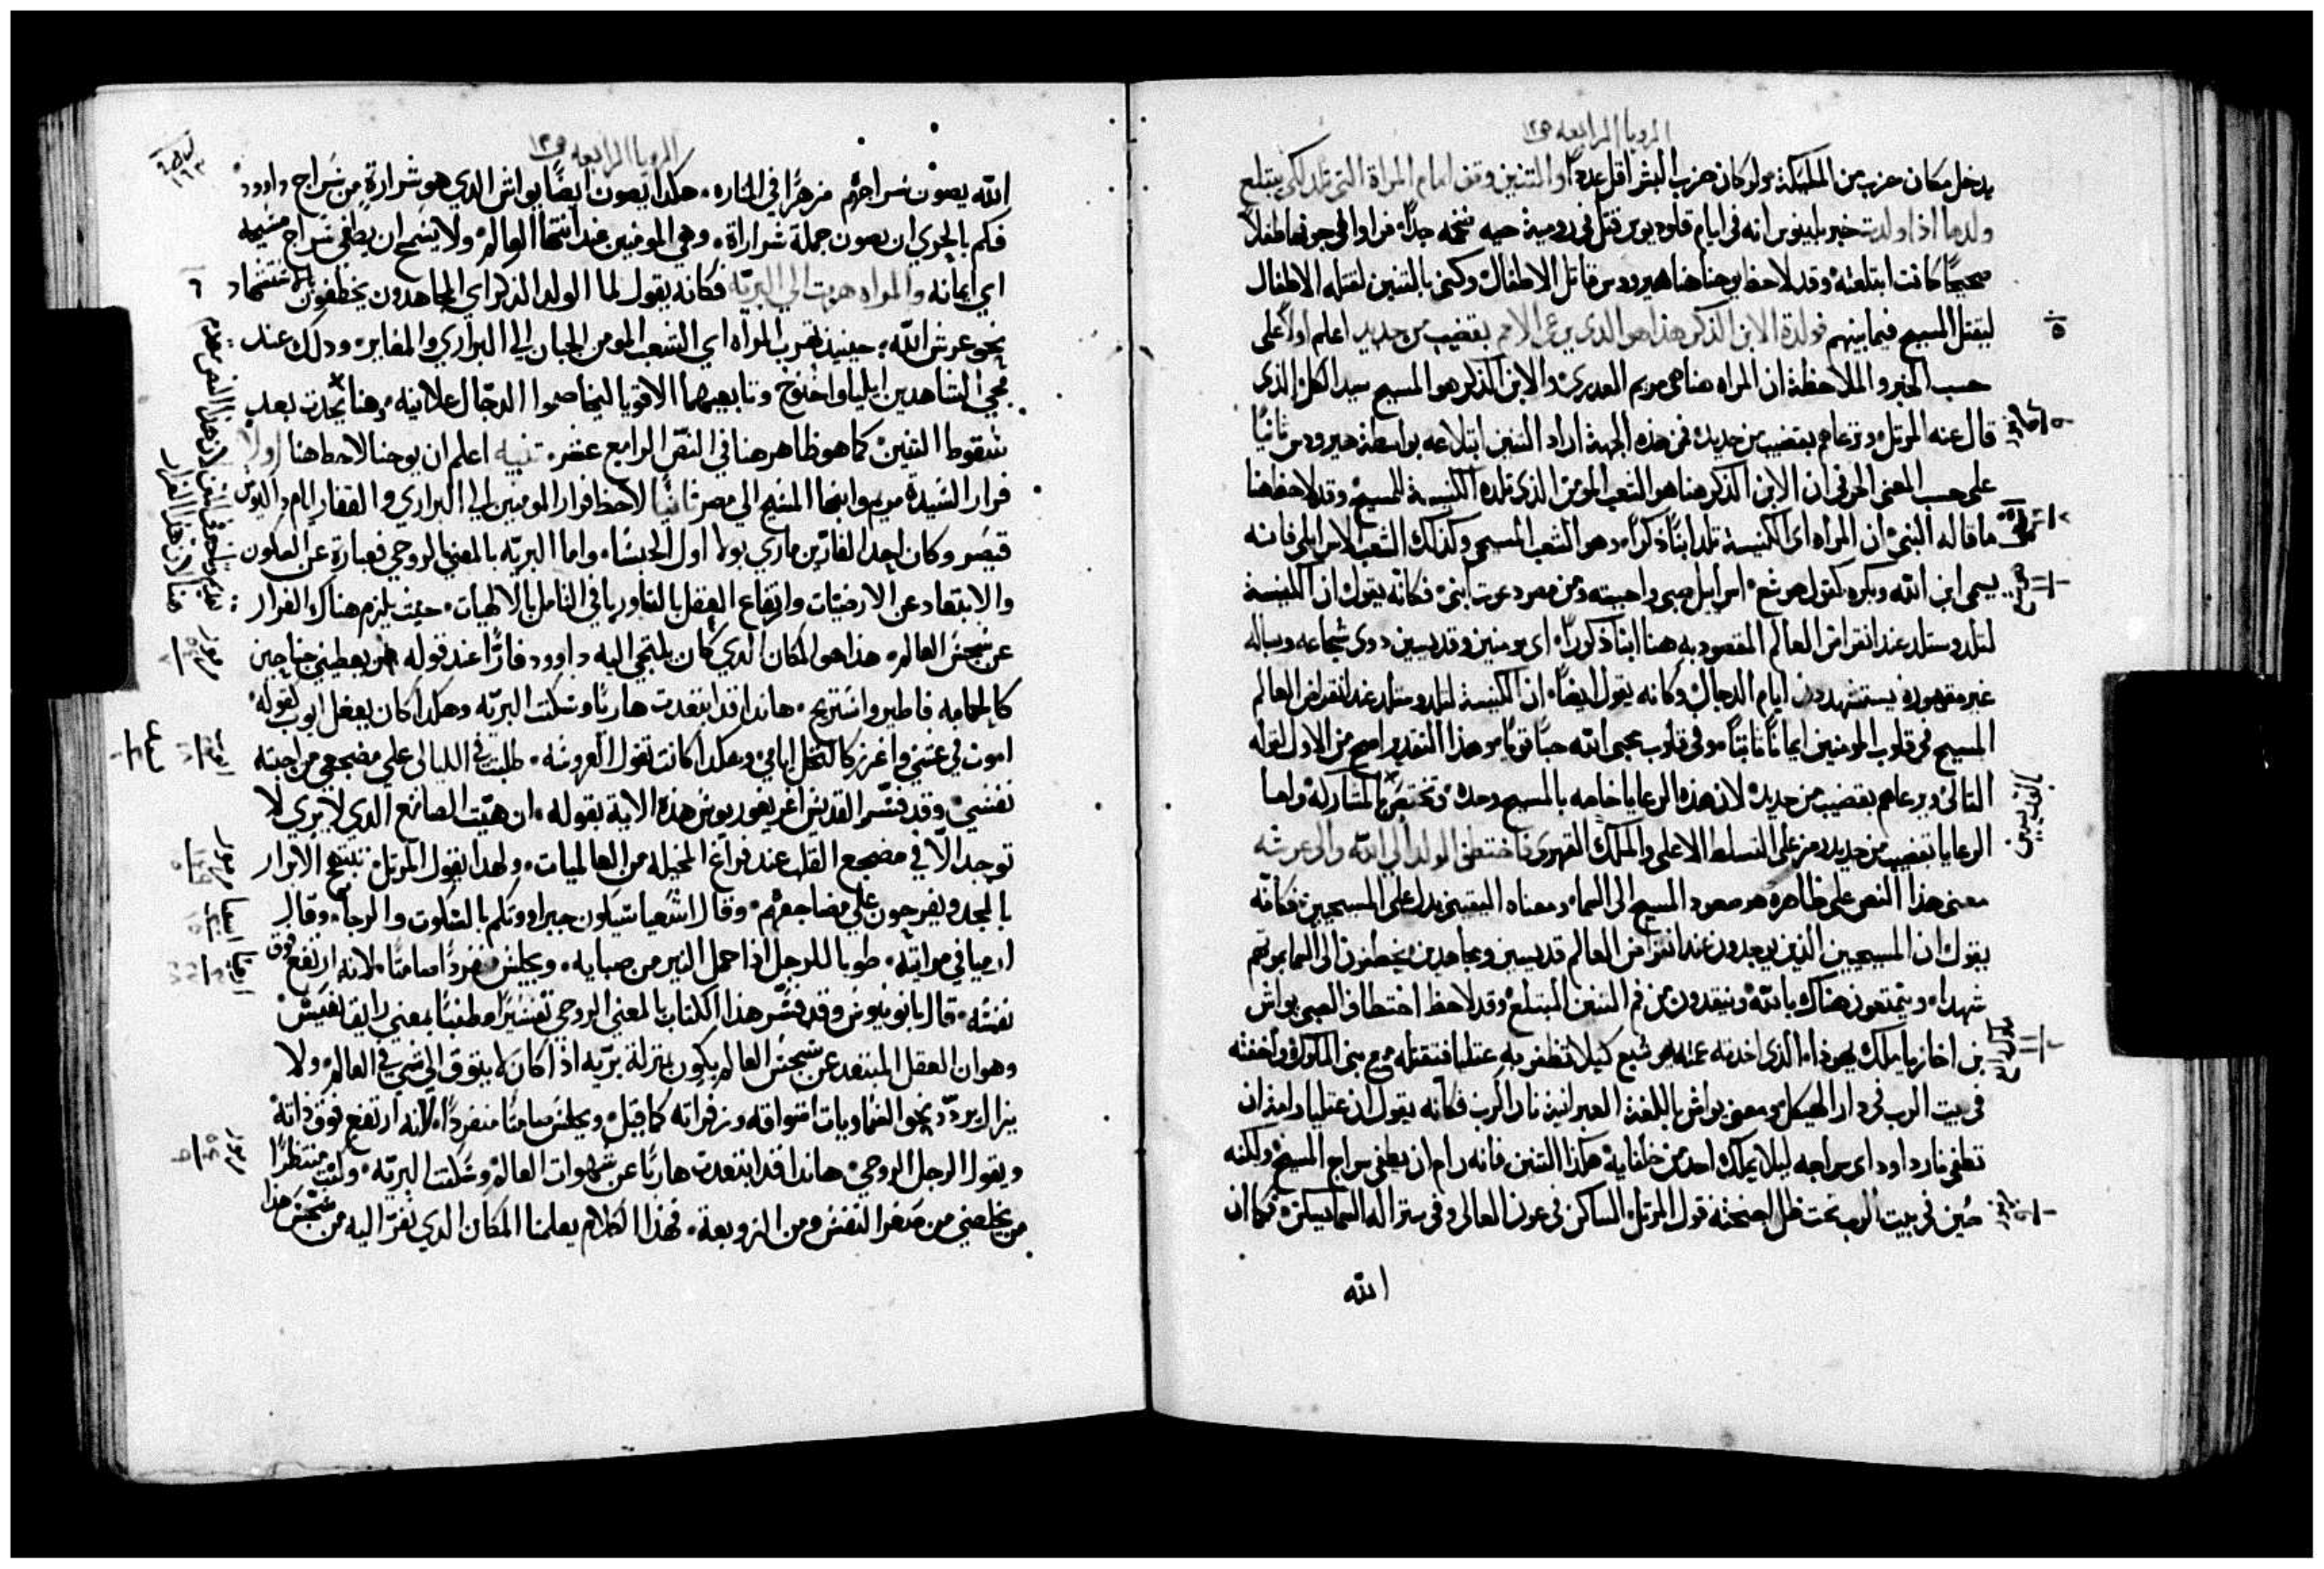 الرويا الرابعه ص١٢
يدخل مكان حزب من الملايكة ولو كان حزب البشر اقل عددًا والتنين وقف امام المراة التي تلد لكي يبتلع
ولدها اذا ولدت خبر بلينوس انه في ايام قلوديوس قتل في رومية حيه ضخمه جدًا فراوا في جوفها طفلًا
صحيحًا كانت ابتلعته وقد لاحظ يوحنا هنا هيرودس قاتل الاطفال وكنى بالتنين لقتله الاطفال
ليقتل المسيح فيما بينهم فولدة الابن الذكر هذا هو الذي يرعى الامم بقضيب من حديد اعلم اولًا على
حسب الخبر والملاحظة ان المراه هنا هي مريم العدرى والابن الذكر هو المسيح سيد الكل الذي
قال عنه المرتل وترعاهم بقضيب من حديد فمن هذه الجهة اراد التنين ابتلاعه بواسطة هيرودس ثانيًا
على حسب المعنى الحرفي ان الابن الذكر هنا هو الشعب المومن الذي تلده الكنيسة للمسيح وقد لاحظ هنا
ما قاله النبي ان المراه اي الكنيسة تلد ابنًا ذكرًا وهو الشعب المسيحي وكذلك الشعب الاسرايلي فانه
يسمى ابن الله وبكره كقول هوشع اسرايل صبي واحببته ومن مصر دعوت ابني فكانه يقول ان الكنيسة
لتلد وستلد عند انقراض العالم المقصود به هنا ابنًا ذكورًا اي مومنين وقديسين ذوي شجاعه وبساله
غير مقهورة يستشهدون ايام الدجال وكانه يقول ايضًا ان الكنيسة لتلد وستلد عند انقراض العالم
المسيح في قلوب المومنين ايمانًا ثابتًا وفي قلوب محبي الله حبًا قويًا وهذا التفسير اصح من الاول لقوله
التالي ويرعاهم بقضيب من حديد لان هذه الرعايا خاصه بالمسيح وحده وتختص بالمشاركة واما
الرعايا بقضيب من حديد رمز على التسلط الاعلى والملك القهري فاختطف الولد الى الله والى عرشه
معنى هذا النص على ظاهره هو صعود المسيح الى السما ومعناه اليقيني يدل على المسيحيين فكانه
يقول ان المسيحيين الذين يوجدون عند انقراض العالم قديسين ومجاهدين يخطفون الى السما بموتهم
شهدا ويتمتعون هناك بالله وينقذون من فم التنين المبتلع وقد لاحظ اختطاف الصبي يواش
بن اخازيا ملك يهوذا الذي اخذته عمته يهوشبع كيلا تظفر به عتليا فتقتله مع بني الملوك واخفته
في بيت الرب في دار الهيكل ومعنى يواش باللغة العبرانية نار الرب فكانه يقول ان عتليا رامت ان
تطفي نار داود اي سراجه ليلا يملك احد من خلفايه هكذا التنين فانه رام ان يطفي سراج المسيح ولكنه
صُين في بيت الرب تحت ظل اجنحته كقول المرتل الساكن في عون العالي وفي ستر اله السما يسكن فكما ان
الله
الرويا الرابعه ص١٢
الله يصون سراجهم مزهرًا في المناره هكدا يصون ايضًا يواش الدي هو شرارة من سراج داوود
فكم بالحري ان يصون جملة شراراة وهي المومنين عند انتها العالم ولا يسمح ان يطفي سراج مسيحه
اي ايمانه والمراه هربت الي البريّه فكانه يقول لما الولد الذكر اي المجاهدون يخطفون بالاستشهاد
نحو عرش الله حينيذ تهرب المراه اي الشعب المومن الجبان الي البراري والمغاير ودلك عند
مجي الشاهدين ايليا واخنوخ وتابعيهما الاقويا ليخاصموا الدجّال علانيه وهنا يحدت بعد
سقوط التنين كما هو ظاهر هنا في النصّ الرابع عشر تنبيه اعلم ان يوحنا لاحظ هنا اولًا
فرار السّيدة مريم وابنها المسيح الي مصر ثانيًا لاحظ فرار المومنين الي البراري والقفار ايام داكيوس
قيصر وكان احد الفارّين ماري بولا اول الحبسا واما البريّه بالمعني الروحي فعبارة عن السكون
والابتعاد عن الارضيّات وارتفاع العقل بالتاوريا في التامل بالالهيات حيث يلزم هناك الفرار
عن سجس العالم هذا هو المكان الدي كان يلتجي اليه داوود فارًّا عند قوله من يعطيني جناحين
كالحمامه فاطير واستريح هاندا قد ابتعدت هاربًا وسكنت البريّه وهكدا كان يفعل ايوب لقوله
اموت في عشي واغزر كالنخل ايامي وهكدا كانت تقول العروسه طلبت في الليالي علي مضجعي من احبته
نفسي وقد فسّر القديس اغريغوريوس هذه الاية بقوله ان هيّت الصانع الدي لا يري لا
توجد الّا في مضجع القلب عند فراغ المخيله من العالميات ولهدا يقول المرتل تبتهج الابرار
بالمجد ويفرحون علي مضاجعهم وقال اشعيا سيكون جبراووتكم بالسكوت والرجا وقال
ارميا في مراتيه طوبا للرجل اذا حمل النير من صبايه ويجلس منفردًا صامتًا لانه ارتفع فوق
نفسه قال يانوبيوس وقد فسّر هذا الكتاب بالمعني الروحي تفسيرًا مطنبًا بمعني رايق نفيس
وهو ان العقل المبتعد عن سجس العالم يكون بمنزلة بريّه اذا كان لا يتوق الي شي في العالم ولا
يزال يردّد نحو السماويات اشواقه وزفراته كما قيل ويجلس صامتًا منفردًا لانه ارتفع فوق ذاته
ويقول الرجل الروحي هاندا قد ابتعدت هاربًا عن شهوات العالم وسكنت البريّه وكنت منتظرًا
من يخلصني من صغر النفس ومن الزوبعة فهذا الكلام يعلمنا المكان الدي نفرّ اليه من سجس هذا